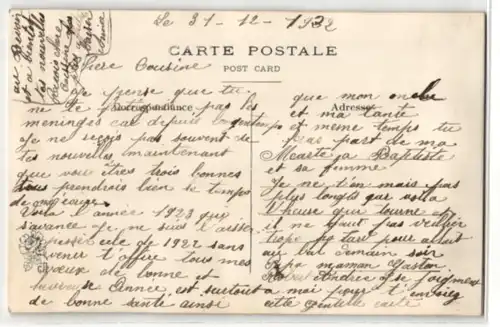 Le 31-12-1922
CARTE POSTALE
POST CARD
Correspondance
Adresse
Chère Cousine
Je pense que tu
ne te pas les
meninges car depuis longtemps
je ne reçois pas souvent de
tes nouvelles maintenant
que vous êtres trois bonnes
vous prendrais bien le temps
de
Voila l'année 1923 qui
s'avance je ne suis l'aisser
passer cele de 1922 sans
venir t'offrir tous mes
vœux de bonne et
heureuse Année, et surtout
de bonne santé ainsi
que mon oncle
et ma tante
et meme temps tu
feras part de ma
carte a Baptiste
et sa femme
Je ne t'en mais pas
plus longts que voila
l'heure qui tourne et
il ne faut pas veiller
trop tart pour allait
au bal demain soir
Papa maman Gaston
André se joignent
a moi pour t'envoiez
cette gentille carte
au Revoir
et a bientôt
tes nouvelles
chere
cousine